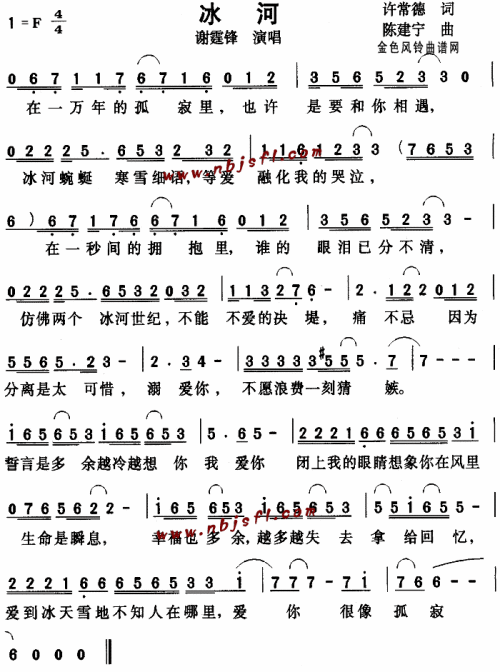 冰河
1=F 4/4
许常德 词
谢霆锋 演唱
陈建宁 曲
金色风铃曲谱网
0 6 7 1 1 7 6 7 1 6 0 1 2 | 3 5 6 5 2 3 3 0
在一万年的孤 寂里,也许 是要和你相遇,
0 2 2 2 5 . 6 5 3 2 3 2 | 1 1 6 1 2 3 3 (7 6 5 3
www.nbjsfl.com
冰河蜿蜒 寒雪细语,等爱 融化我的哭泣,
6 ) 6 7 1 7 6 6 7 1 6 0 1 2 | 3 5 6 5 2 3 3 - |
在一秒间的拥 抱里,谁的 眼泪已分不清,
0 2 2 2 5 . 6 5 3 2 0 3 2 | 1 1 3 2 7 6 - | 2 . 1 2 2 0 1 2 |
仿佛两个 冰河世纪,不能 不爱的决 堤, 痛 不忌 因为
5 5 6 5 . 2 3 - | 2 . 3 4 - | 3 3 3 3 3 #5 5 5 . 7 | 7 - - - |
分离是太 可惜, 溺 爱你, 不愿浪费一刻猜 嫉。
i 6 5 6 5 3 i 6 5 6 5 3 | 5 . 6 5 - | 2 2 2 1 6 6 6 5 6 5 3 i |
誓言是多 余越冷越想 你我 爱你 闭上我的眼睛想象你在风里
0 7 6 5 6 2 2 - | i 6 5 6 5 3 i 6 5 6 5 3 | 5 5 i 6 5 5 - |
www.nbjsfl.com
生命是瞬息, 幸福也多余,越多越失 去 拿 给回忆,
2 2 2 1 6 6 6 5 6 5 3 3 i | 7 7 7 - 7 i | 7 6 6 - - |
爱到冰天雪地不知人在哪里,爱 你 很像 孤寂
6 0 0 0 ||